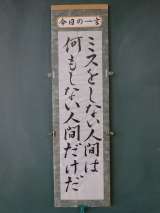 今日の一言
ミスをしない人間は
何もしない人間だけだ